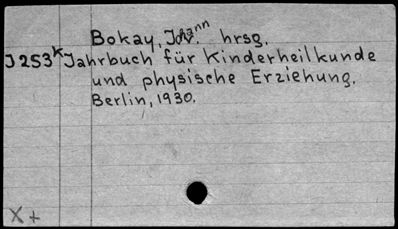 Bokay, Johann hrsg.
J253k Jahrbuch für Kinderheilkunde
und physische Erziehung.
Berlin, 1930.
X +